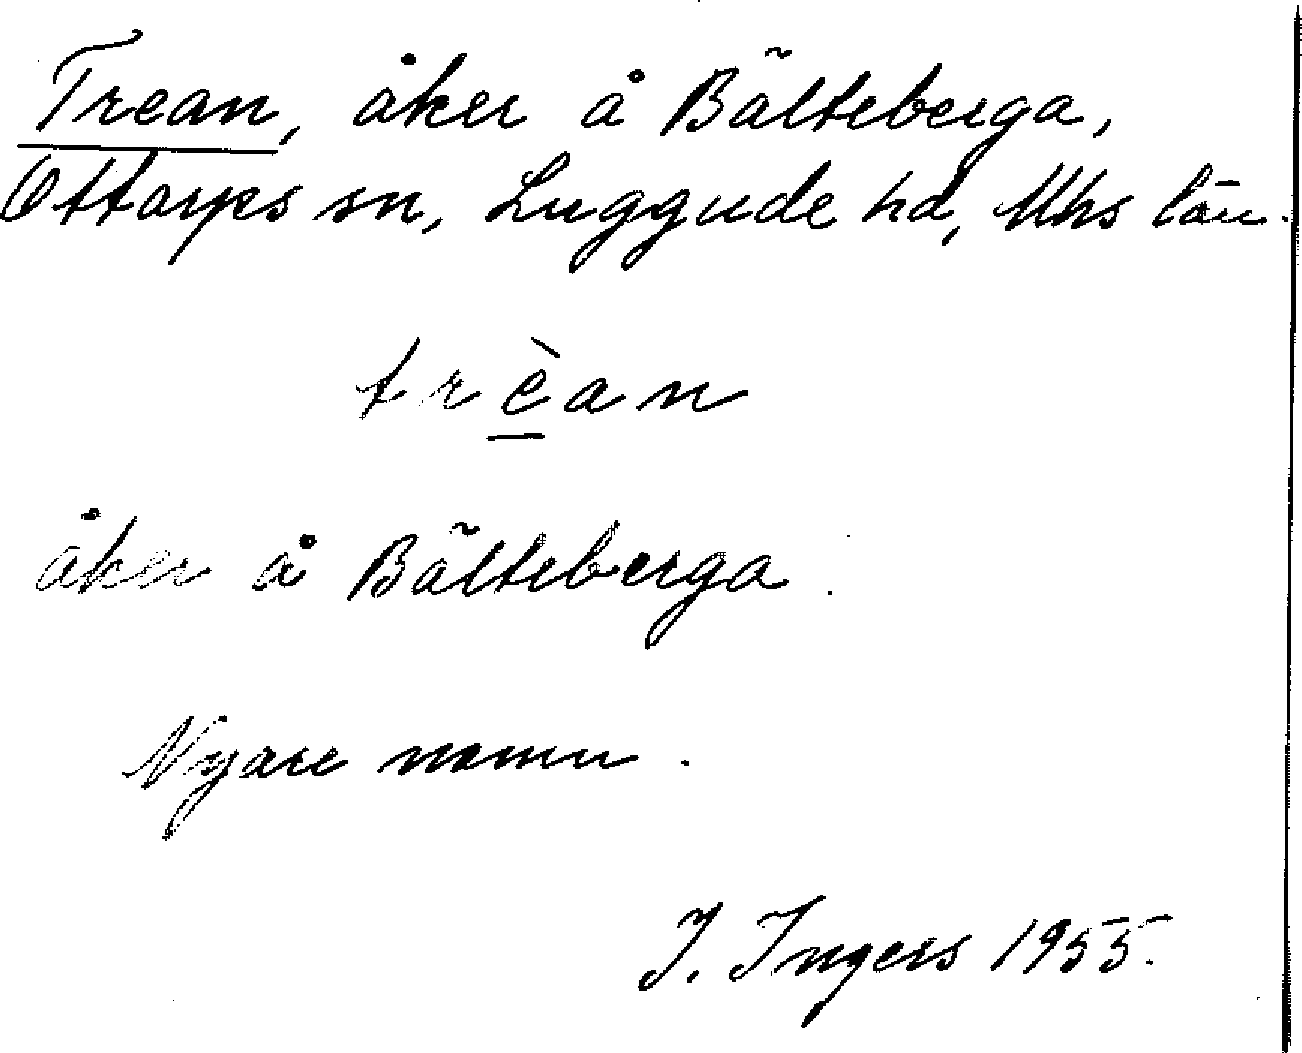 Trean, åker å Bälteberga,
Ottarps sn, Luggude hd, Mhs län.
trèan
åker å Bälteberga.
Nyare namn.
I. Ingers 1955.